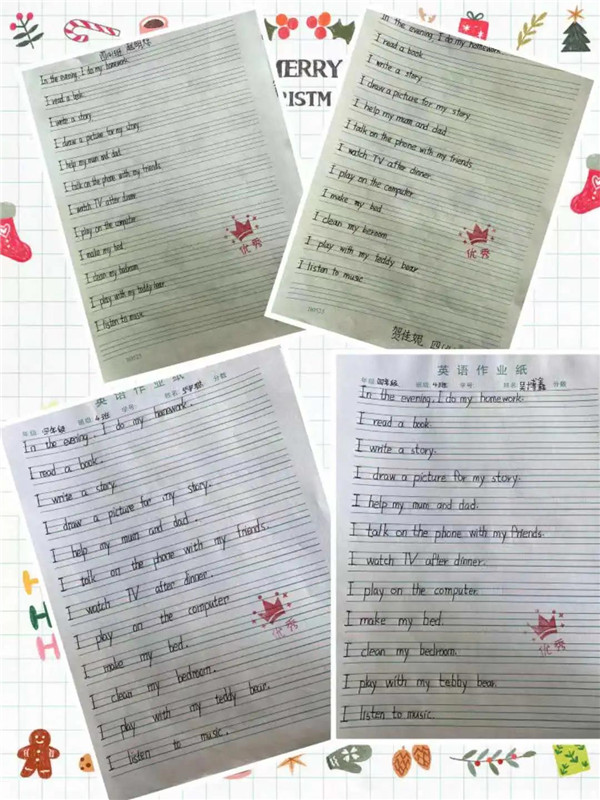 MERRY
In the evening, I do my homework.
I read a book.
I write a story.
I draw a picture for my story.
I help my mum and dad.
I talk on the phone with my friends.
I watch TV after dinner.
I play on the computer.
I make my bed.
I clean my bedroom.
I play with my teddy bear.
I listen to music.
优秀
In the evening, I do my homework.
I read a book.
I write a story.
I draw a picture for my story.
I help my mum and dad.
I talk on the phone with my friends.
I watch TV after dinner.
I play on the computer.
I make my bed.
I clean my beroom.
I play with my teddy bear.
I listen to music.
优秀
贺佳妮
英语作业纸
年级 班级 4班 学号 姓名 分数
In the evening, I do my homework.
I read a book.
I write a story.
I draw a picture for my story.
I help my mum and dad.
I talk on the phone with my friends.
I watch TV after dinner.
I play on the computer.
I make my bed.
I clean my bedroom.
I play with my teddy bear.
I listen to music.
优秀
英语作业纸
年级 四年级 班级 4班 学号 姓名 分数
In the evening, I do my homework.
I read a book.
I write a story.
I draw a picture for my story.
I help my mum and dad.
I talk on the phone with my friends.
I watch TV after dinner.
I play on the computer.
I make my bed.
I clean my bedroom.
I play with my tebby bear.
I listen to music.
优秀